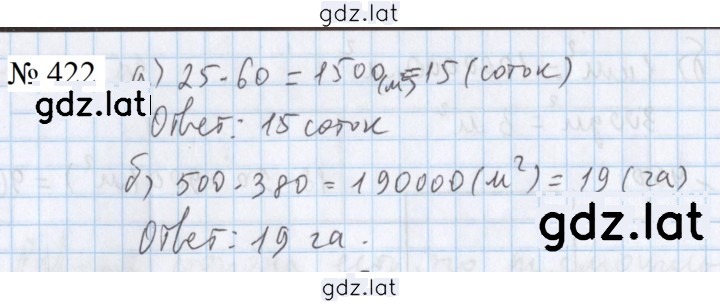 gdz.lat
№ 422
а) 25·60 = 1500 (м²) = 15 (соток)
gdz.lat
Ответ: 15 соток
б) 500·380 = 190000 (м²) = 19 (га)
gdz.lat
Ответ: 19 га.
gdz.lat